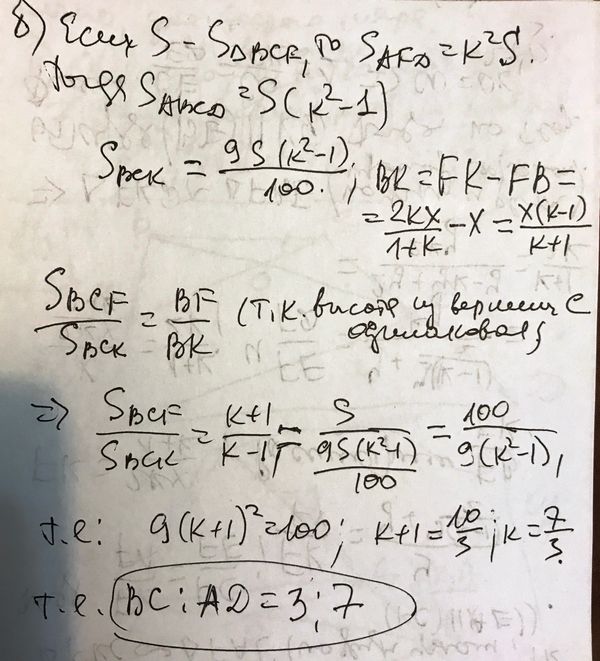 б) Если S - S△BCF, то S_AFD = k²S.
Тогда S_ABCD = S(k²-1)
S_BCK = 9S(k²-1)/100 ; BK = FK - FB =
= 2kx/(1+k) - x = x(k-1)/(k+1)
S_BCF/S_BCK = BF/BK (т.к. высота из вершины C
одинаковая)
=> S_BCF/S_BCK = (k+1)/(k-1) = S/(9S(k²-1)/100) = 100/(9(k²-1)),
т.е: 9(k+1)² = 100; k+1 = 10/3; k = 7/3.
т.е. BC : AD = 3 : 7